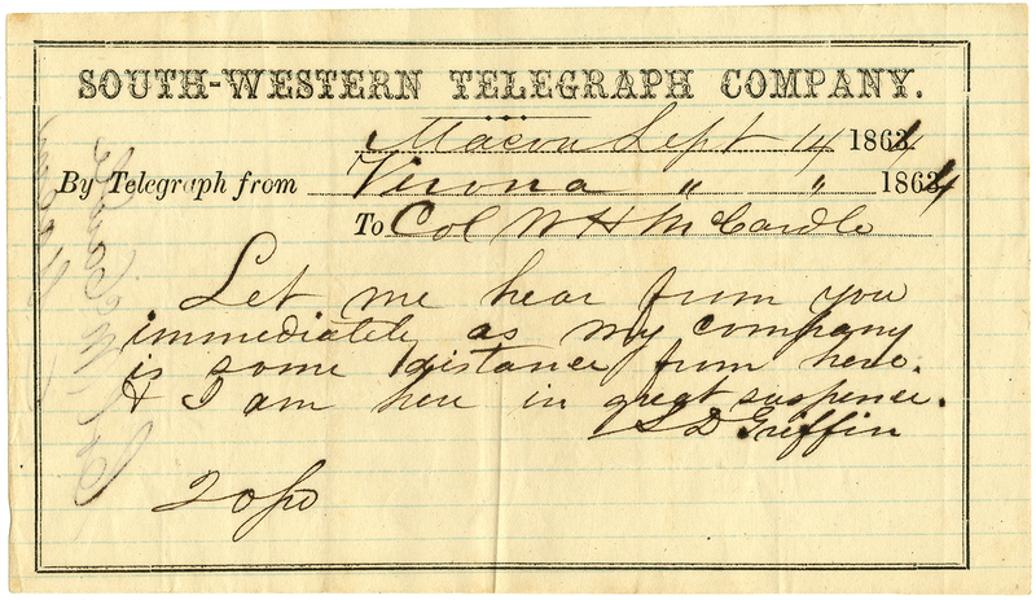 SOUTH-WESTERN TELEGRAPH COMPANY.
Macon Sept 14 1864
By Telegraph from Verona " " 1864
To Col W H McCardle
Let me hear from you
immediately as my company
is some distance from here.
& I am here in great suspense.
S D Griffin
20